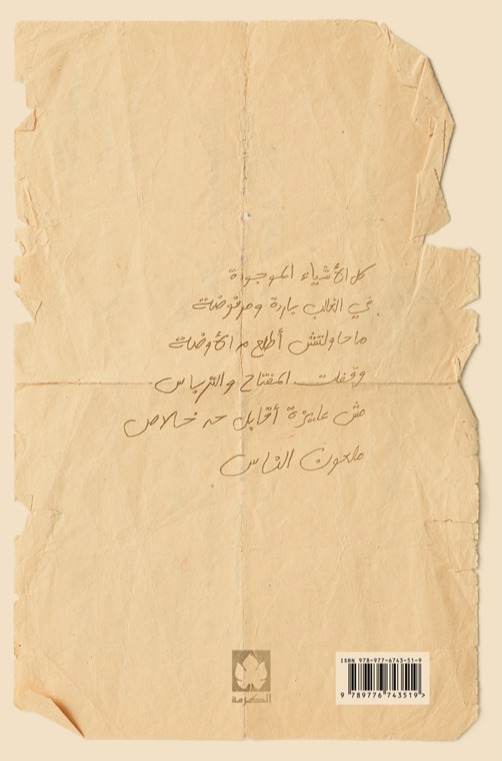 كل الأشياء الموجودة
في الغالب باردة ومرفوضة
ماحاولتش أطلع م الأوضة
وقفلت المفتاح والترباس
مش عايزة أقابل حد خلاص
ملعون الناس
الكرمة
ISBN 978-977-6743-51-9
9 789776 743519 >